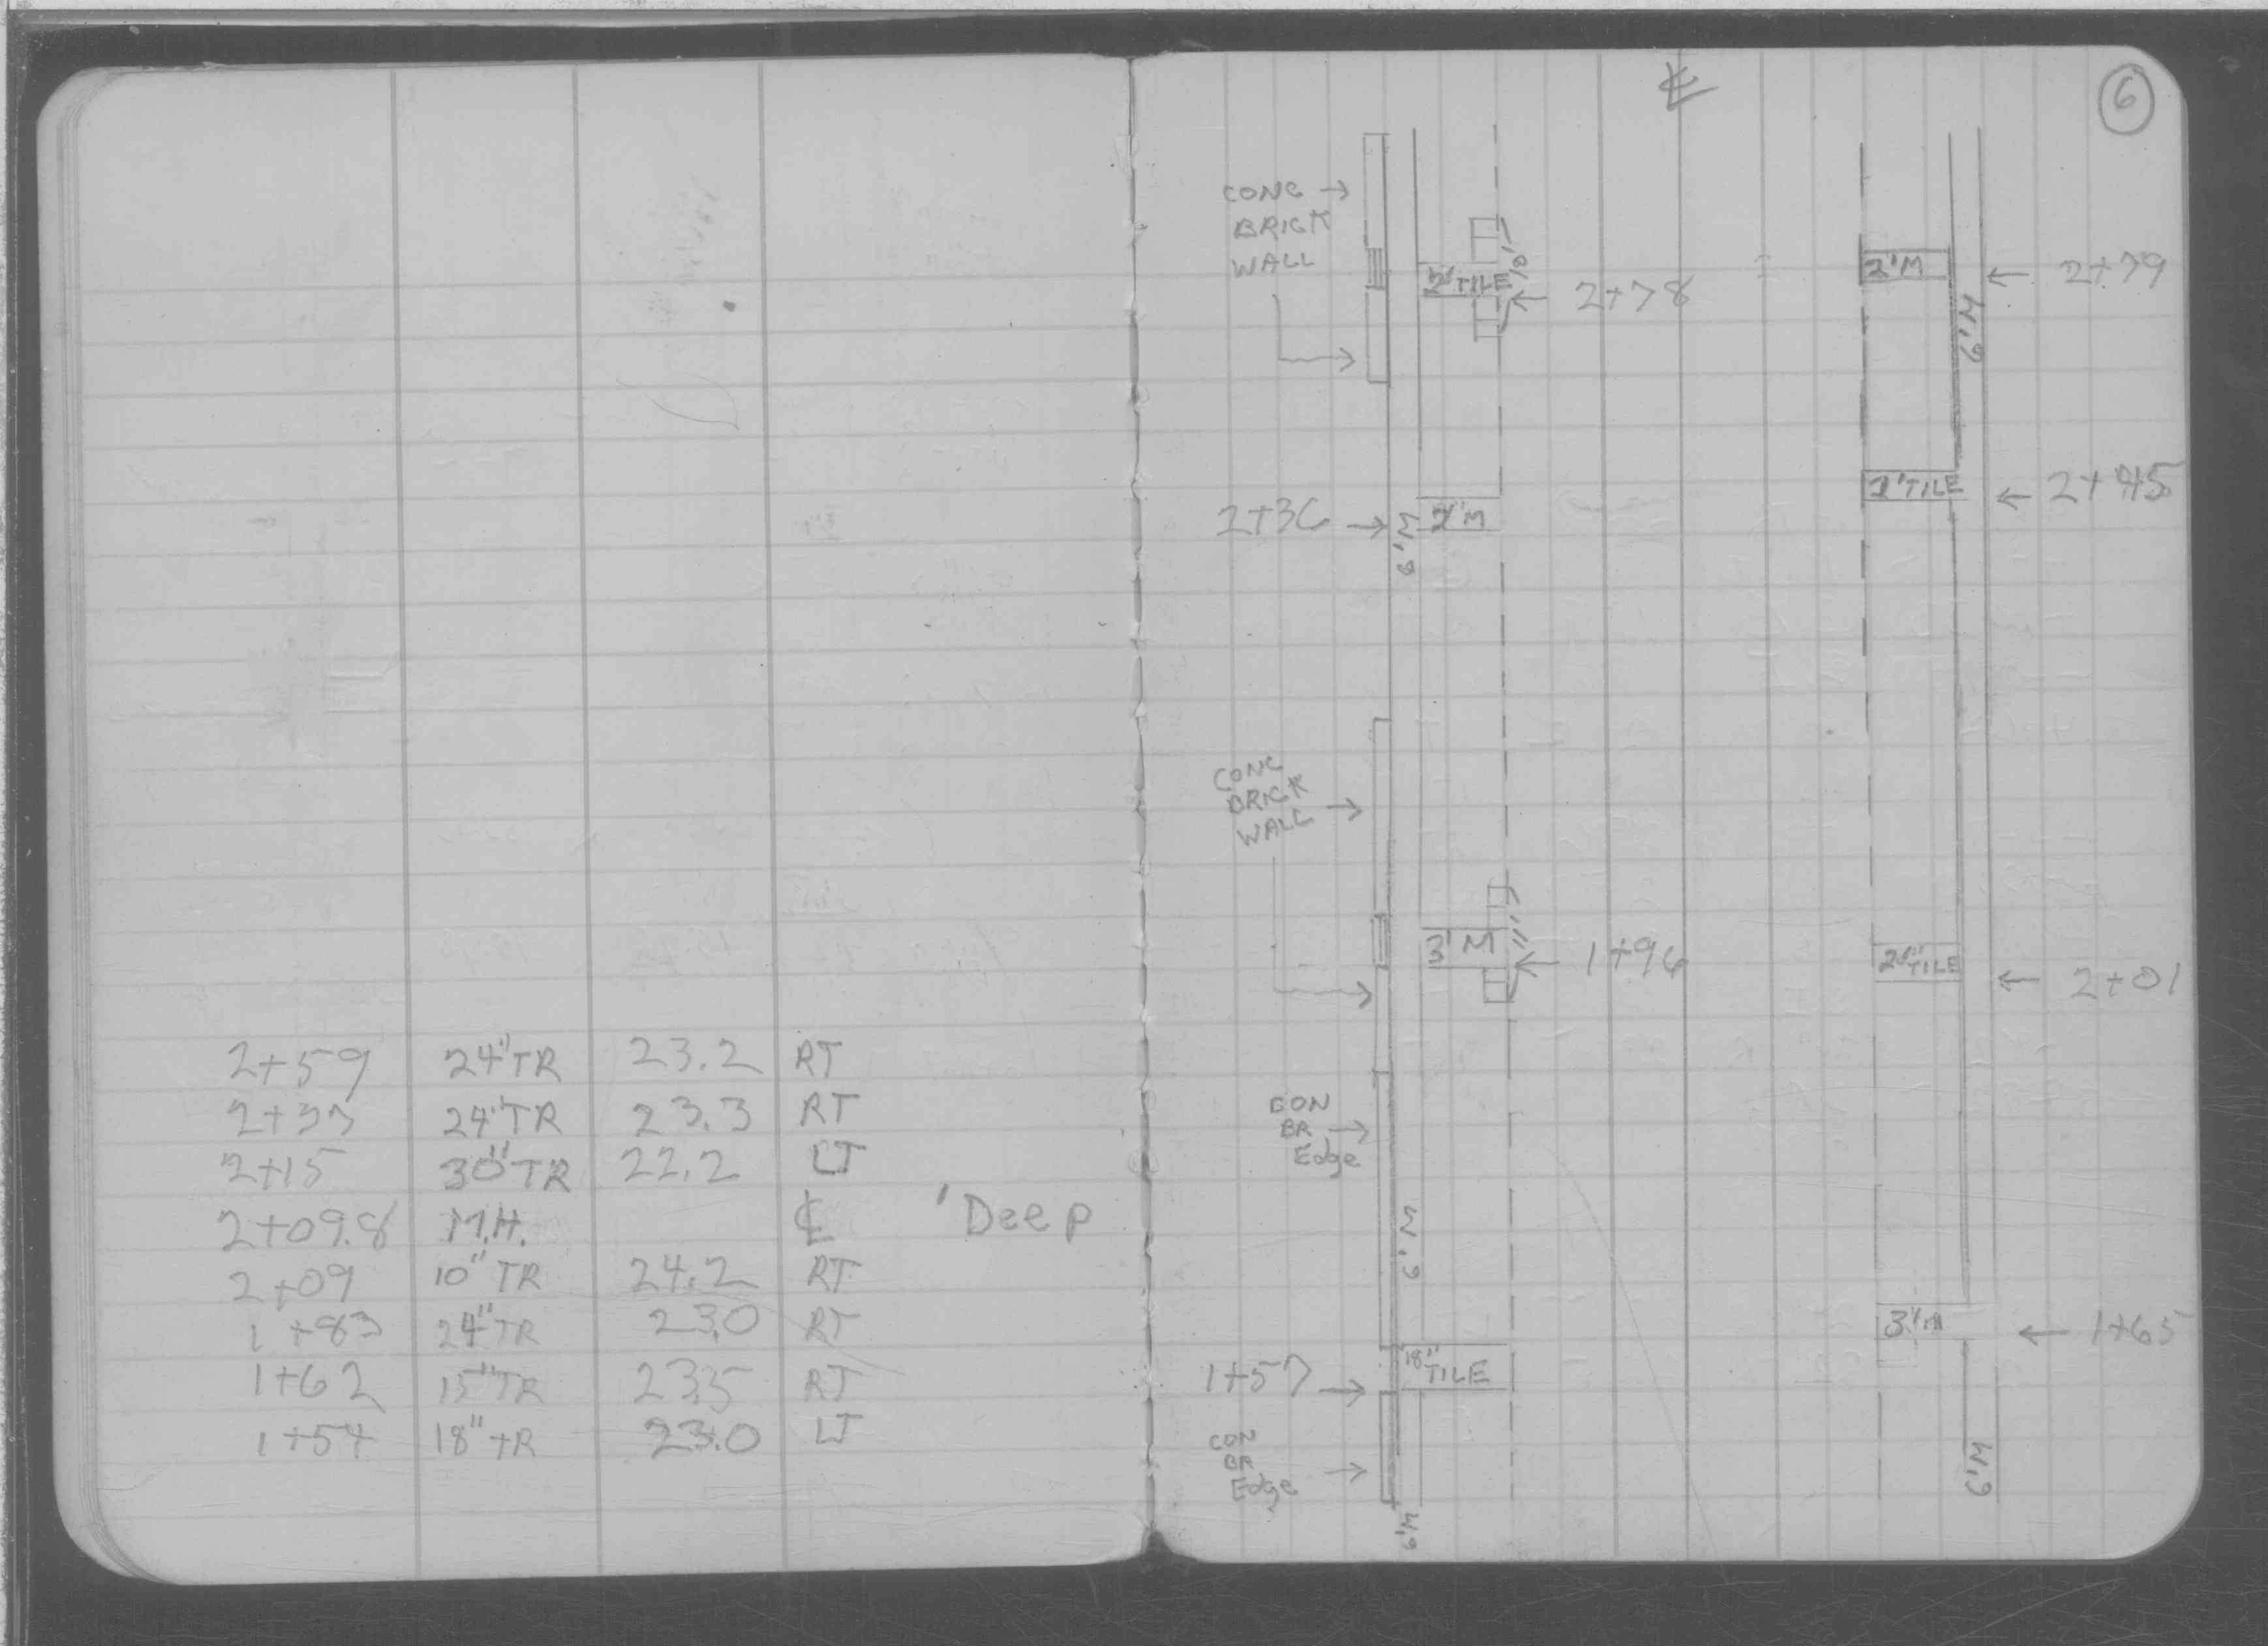 2+59 24"TR 23.2 RT
2+33 24"TR 23.3 RT
2+15 30"TR 22.2 LT
2+09.8 M.H. ℄ 'Deep
2+09 10"TR 24.2 RT
1+83 24"TR 23.0 RT
1+62 15"TR 23.5 RT
1+54 18"TR 23.0 LT
℄
6
CONC →
BRICK
WALL
2'TILE
10'
← 2+78
2'M
← 2+79
6'M
2'TILE
← 2+45
2+36 →
6'M
2'M
CONC
BRICK →
WALL
3'M
11'
← 1+96
TILE
← 2+01
CON
BR →
Edge
6'M
3'M
← 1+65
1+57 →
18"
TILE
CON
BR →
Edge
6'M
6'M